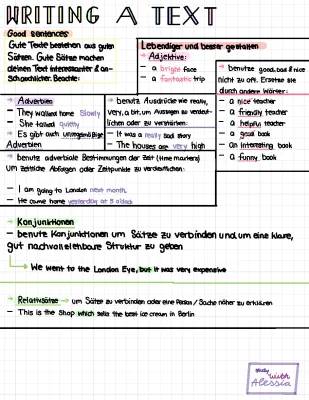 WRITING A TEXT
Good sentences
Gute Texte bestehen aus guten
Sätzen. Gute Sätze machen
deinen Text interessanter & an-
schaulicher. Beachte:
Lebendiger und besser gestalten
→ Adjektive:
- a bright face
- a fantastic trip
→ benutze good, bad & nice
nicht zu oft. Ersetze sie
durch andere Wörter:
- a nice teacher
- a friendly teacher
- a helpful teacher
- a good book
- an interesting book
- a funny book
→ Adverbien
- They walked home Slowly
- She talked quietly
→ Es gibt auch unregelmäßige
Adverbien
→ benutz Ausdrücke wie really,
very, a bit, um Aussagen zu verdeut-
lichen oder zu verstärken:
- It was a really bad story
- The houses are very high
→ benutze adverbiale Bestimmungen der Zeit (time markers)
um zeitliche Abfolgen oder Zeitpunkte zu verdeutlichen:
- I am going to London next month.
- He came home yesterday at 5 o'clock
→ Konjunktionen
- benutze Konjunktionen um Sätze zu verbinden und um eine klare,
gut nachvollziehbare Struktur zu geben
→ We went to the London Eye, but it was very expensive
→ Relativsätze → um Sätze zu verbinden oder eine Person / Sache näher zu erklären
- This is the Shop which sells the best ice cream in Berlin
Study
with
Alessia